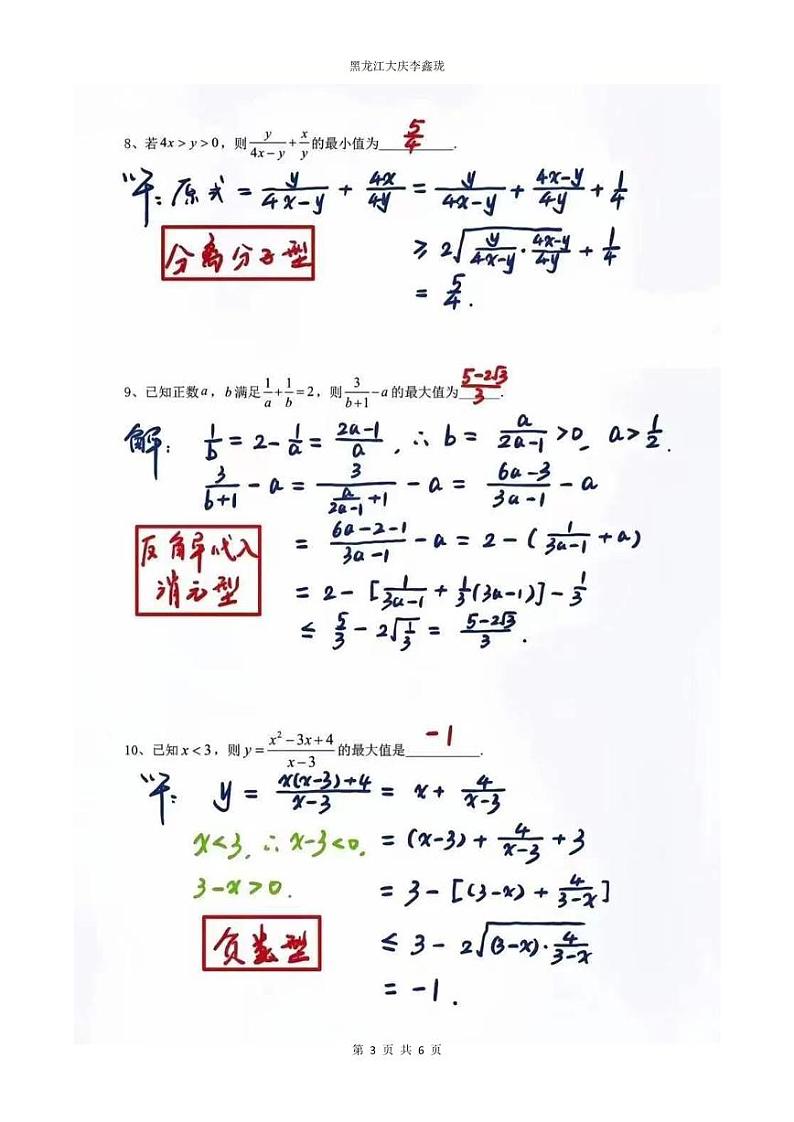 黑龙江大庆李鑫珑
8、若 4x > y > 0，则 y/(4x−y) + x/y 的最小值为 5/4 .
解: 原式 = y/(4x−y) + 4x/4y = y/(4x−y) + (4x−y)/4y + 1/4
分离分子型
≥ 2√(y/(4x−y) · (4x−y)/4y) + 1/4
= 5/4 .
9、已知正数 a，b 满足 1/a + 1/b = 2，则 3/(b+1) − a 的最大值为 (5−2√3)/3 .
解: 1/b = 2 − 1/a = (2a−1)/a , ∴ b = a/(2a−1) > 0, a > 1/2 .
3/(b+1) − a = 3/(a/(2a−1) + 1) − a = (6a−3)/(3a−1) − a
反解代入
消元型
= (6a−2−1)/(3a−1) − a = 2 − (1/(3a−1) + a)
= 2 − [1/(3a−1) + 1/3(3a−1)] − 1/3
≤ 5/3 − 2√(1/3) = (5−2√3)/3 .
10、已知 x < 3，则 y = (x² − 3x + 4)/(x − 3) 的最大值是 −1 .
解: y = (x(x−3)+4)/(x−3) = x + 4/(x−3)
x<3, ∴ x−3<0, = (x−3) + 4/(x−3) + 3
3−x>0. = 3 − [(3−x) + 4/(3−x)]
负数型
≤ 3 − 2√((3−x)·4/(3−x))
= −1 .
第 3 页 共 6 页